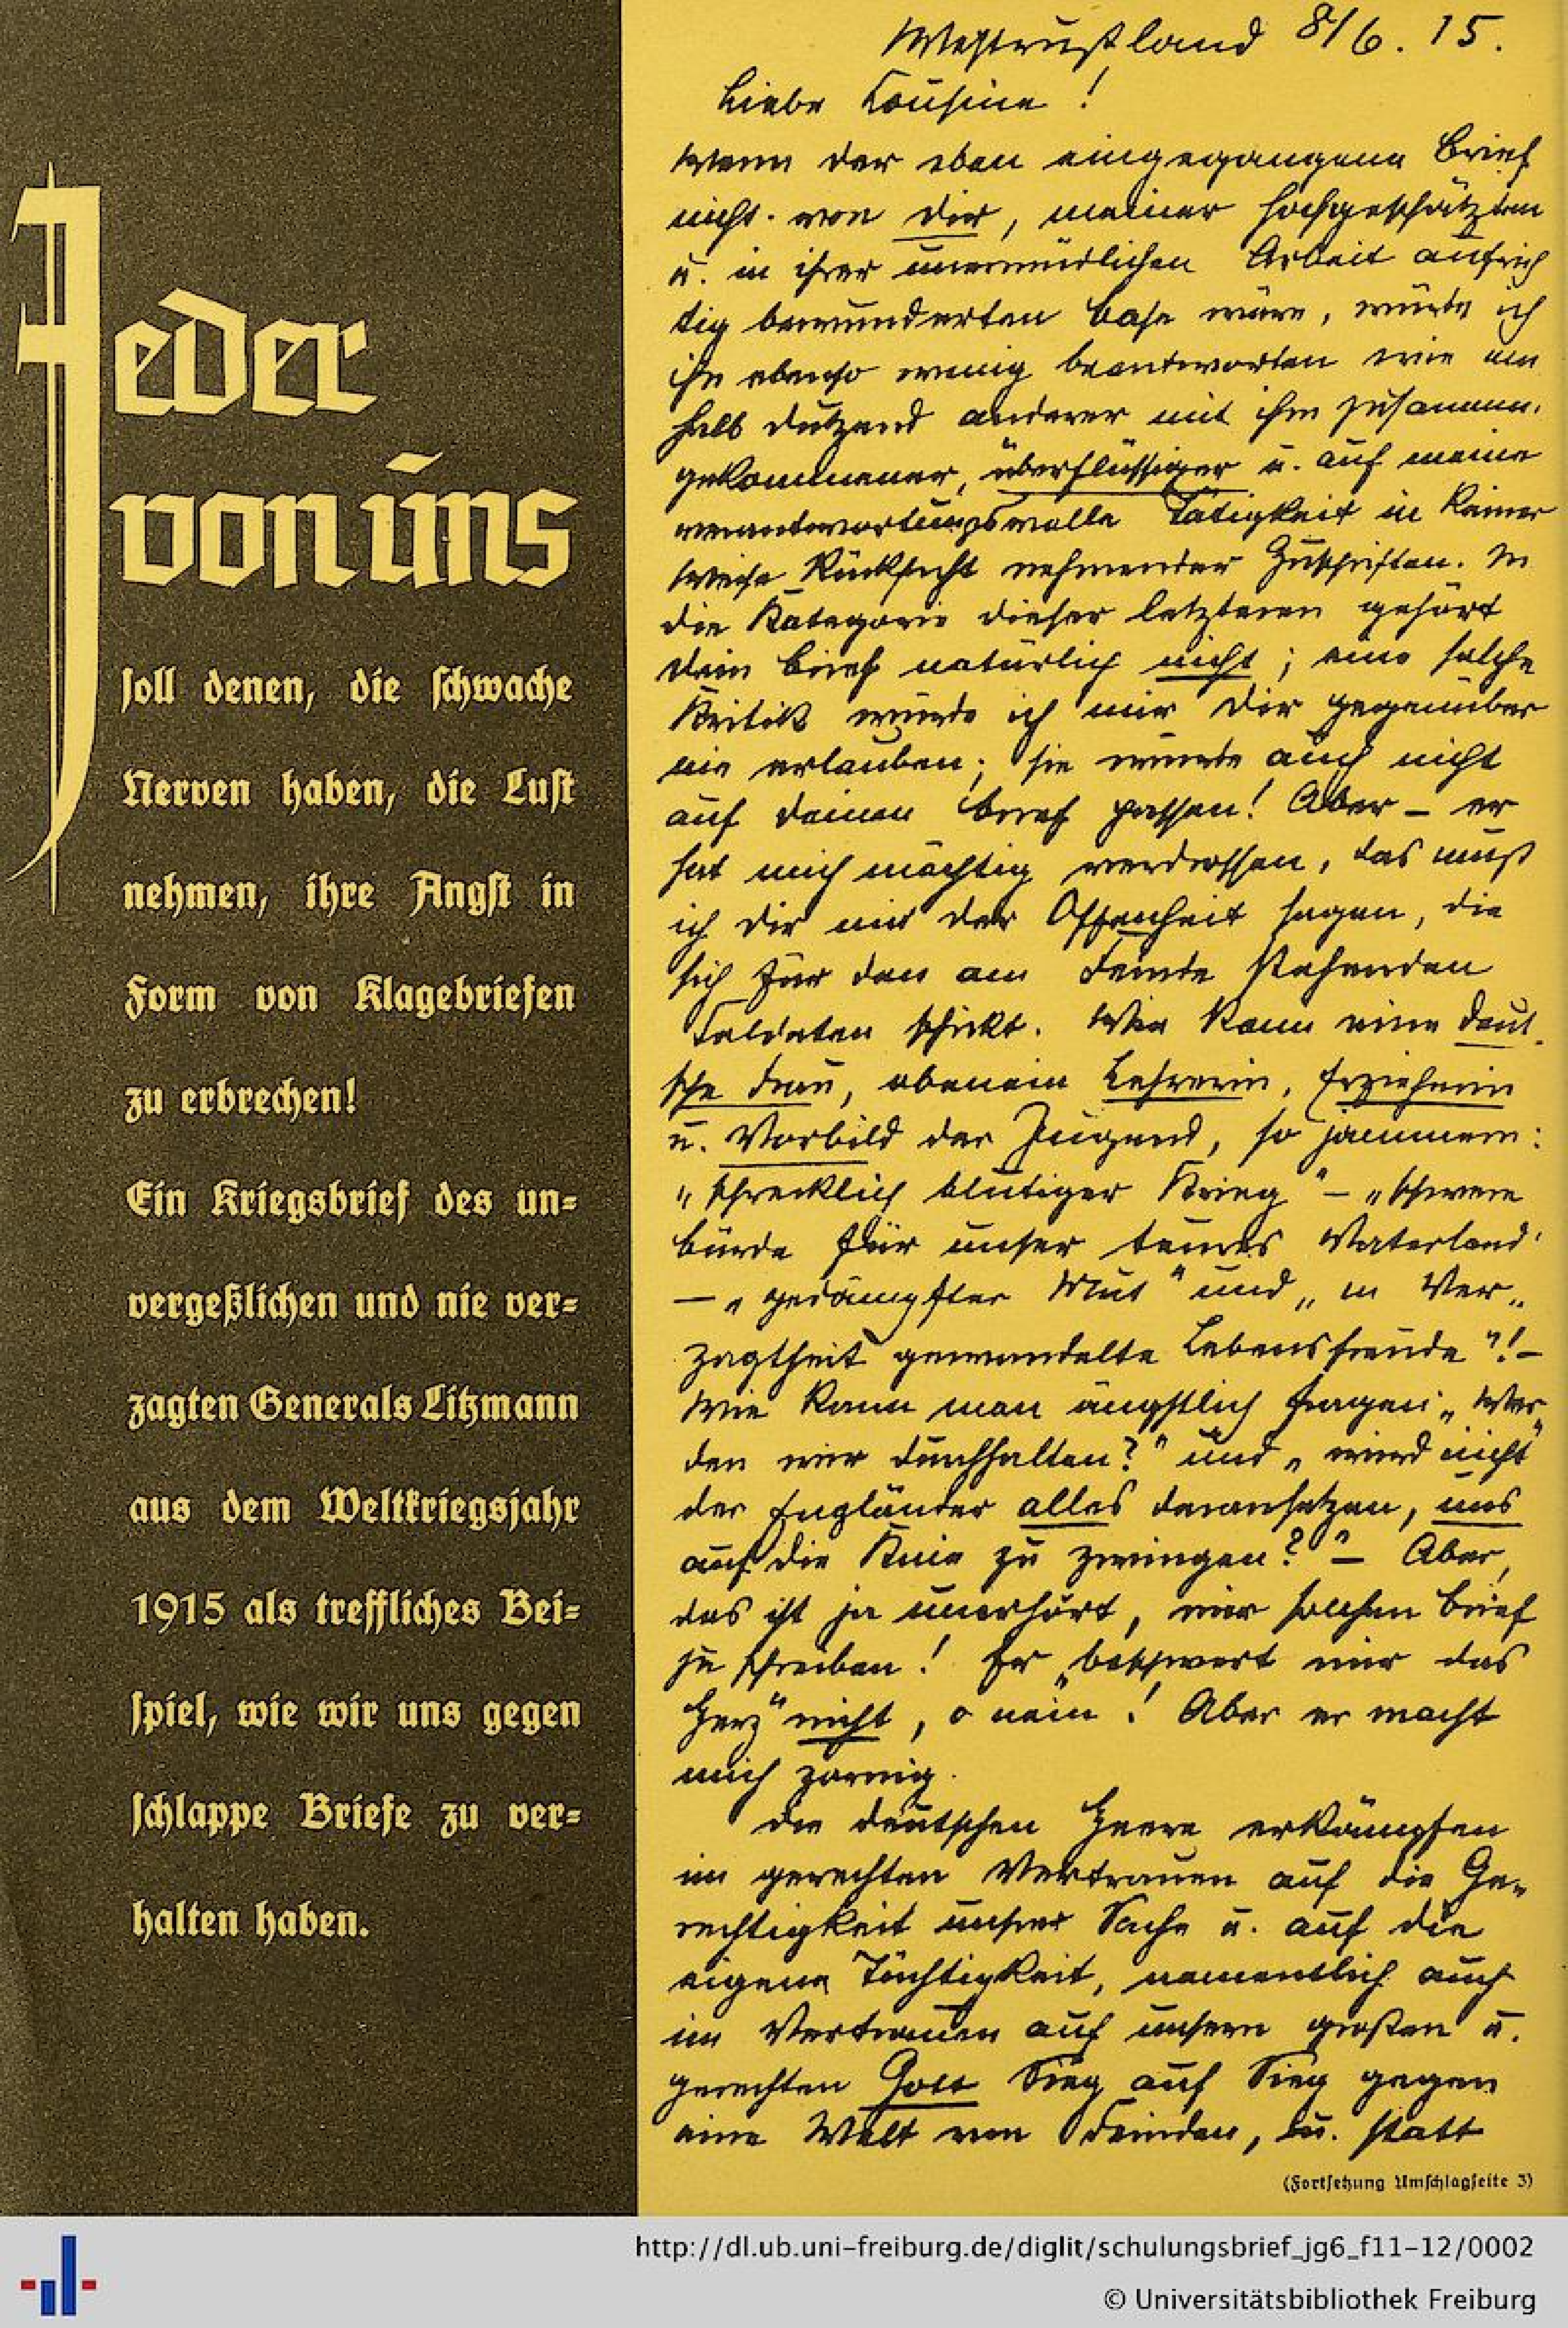 Jeder
von uns
soll denen, die schwache
Nerven haben, die Lust
nehmen, ihre Angst in
Form von Klagebriefen
zu erbrechen!
Ein Kriegsbrief des un=
vergeßlichen und nie ver=
zagten Generals Litzmann
aus dem Weltkriegsjahr
1915 als treffliches Bei=
spiel, wie wir uns gegen
schlappe Briefe zu ver=
halten haben.
Westrußland 8/6. 15.
Liebe Cousine!
Wenn der eben eingegangene Brief
nicht von Dir, meiner hochgeschätzten
u. in ihrer unermüdlichen Arbeit aufrich
tig bewunderten Base wäre, würde ich
ihn ebenso wenig beantworten wie ein
halb Dutzend anderer mit ihm zusammen-
gekommener, überflüssiger u. auf meine
verantwortungsvolle Tätigkeit in keiner
Weise Rücksicht nehmender Zuschriften. In
die Kategorie dieser letzteren gehört
Dein Brief natürlich nicht; eine solche
Kritik würde ich mir Dir gegenüber
nie erlauben; sie würde auch nicht
auf Deinen Brief passen! Aber – er
hat mich mächtig verdrossen, das muß
ich Dir mit der Offenheit sagen, die
sich für den am Feinde stehenden
Soldaten schickt. Wie kann eine deut-
sche Frau, obenein Lehrerin, Erzieherin
u. Vorbild der Jugend, so jammern:
„Schrecklich blutiger Krieg" – „Schwere
Bürde für unser teures Vaterland"
– „gedämpfter Mut" und „in Ver-
zagtheit gewandelte Lebensfreude"! –
Wie kann man ängstlich fragen: „Wer-
den wir durchhalten?" und „wird nicht
der Engländer alles daransetzen, uns
auf die Knie zu zwingen?" – Aber,
das ist ja unerhört, mir solchen Brief
zu schreiben! Er „beschwert mir das
Herz" nicht, o nein! Aber er macht
mich zornig.
Die deutschen Heere erkämpfen
im gerechten Vertrauen auf die Ge-
rechtigkeit unsrer Sache u. auf die
eigene Tüchtigkeit, namentlich auch
im Vertrauen auf unsern großen u.
gerechten Gott Sieg auf Sieg gegen
eine Welt von Feinden, u. statt
(Fortsetzung Umschlagseite 3)
http://dl.ub.uni-freiburg.de/diglit/schulungsbrief_jg6_f11-12/0002
© Universitätsbibliothek Freiburg